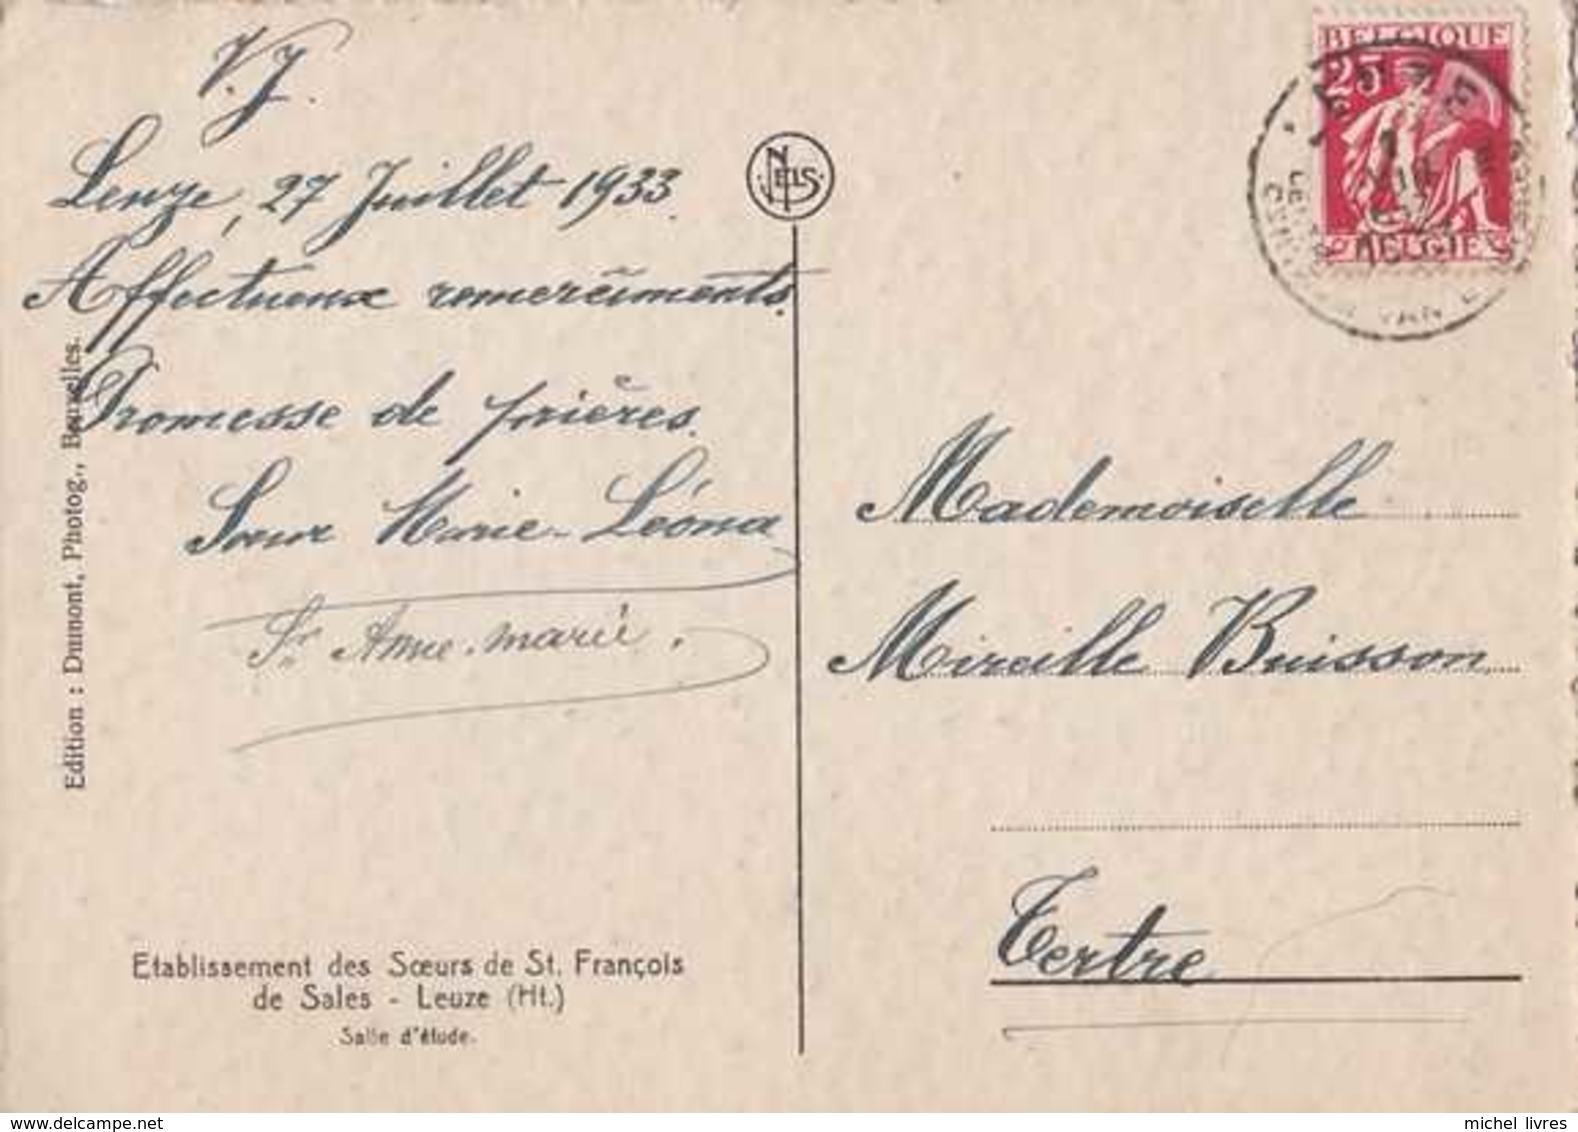 V.J.
Leuze, 27 Juillet 1933.
Affectueux remerciments.
Promesse de prières.
Soeur Marie-Léona
Sr Anne-marie.
Edition : Dumont, Photog., Bruxelles.
Etablissement des Sœurs de St. François
de Sales - Leuze (Ht.)
Salle d'étude.
NELS
BELGIQUE
25
BELGIE
Mademoiselle
Mireille Buisson
Tertre
michel_livres